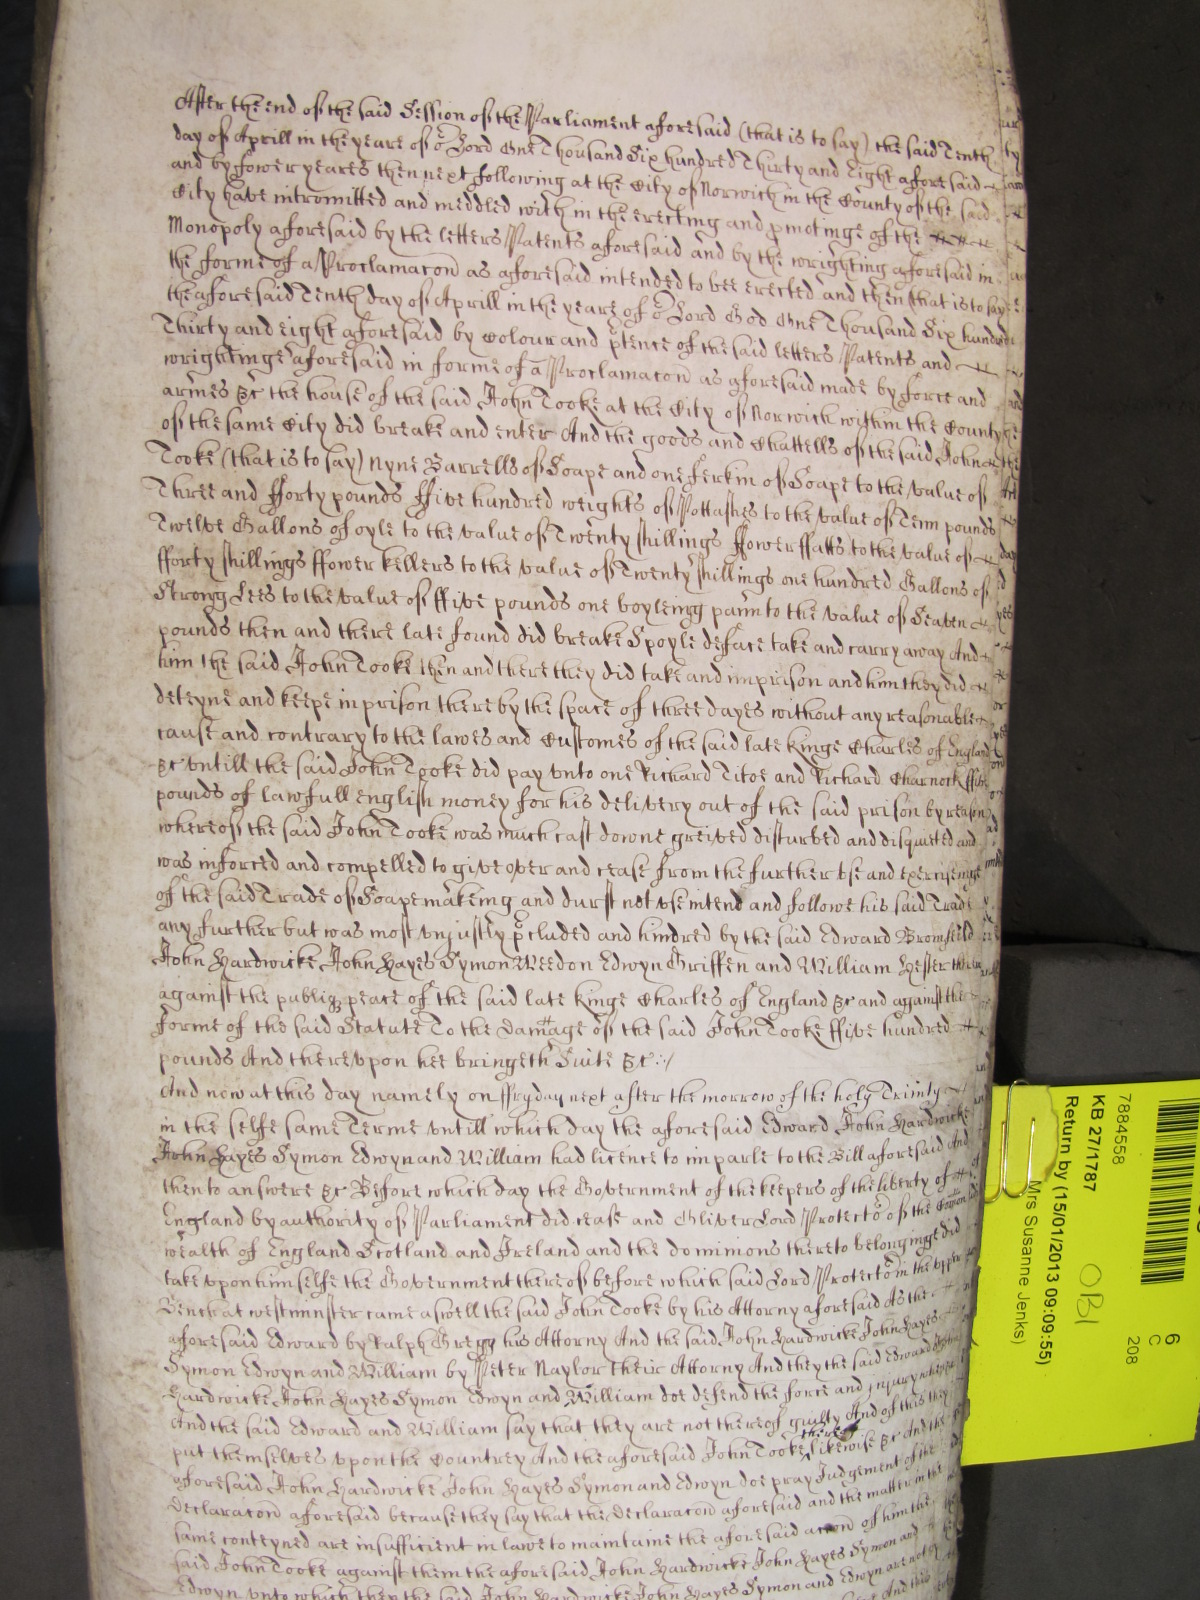 After the end of the said Session of the Parliament aforesaid (that is to say) the said Tenth
day of Aprill in the yeare of or Lord One Thousand Six hundred Thirty and Eight aforesaid
and by fower yeares then next following at the City of Norwich in the County of the said
City have intromitted and meddled with in the erecting and pmotinge of the
Monopoly aforesaid by the letters Patents aforesaid and by the wrighting aforesaid in
the forme of a Proclamacon as aforesaid intended to bee erected and then (that is to say
the aforesaid Tenth day of Aprill in the yeare of or Lord God One Thousand Six hundred
Thirty and eight aforesaid by Colour and ptence of the said letters Patents and
wrightinge aforesaid in forme of a Proclamacon as aforesaid made by force and
armes &c the house of the said John Tooke at the City of Norwich within the County
of the same City did breake and enter And the goods and Chattells of the said John
Tooke (that is to say) Nyne Barrells of Soape and one ferkin of Soape to the value of
Three and fforty pounds ffive hundred weights of Pottashes to the value of Tenn pounds
Twelve Gallons of oyle to the value of Twenty shillings ffower ffatts to the value of
fforty shillings ffower kellers to the value of Twenty shillings one hundred Gallons of
Strong Lees to the value of ffive pounds one boyleing pann to the value of Seaven
pounds then and there late found did breake Spoyle deface take and carry away And
him the said John Tooke then and there they did take and imprison and him they did
deteyne and keepe in prison there by the space of three dayes without any reasonable
cause and contrary to the lawes and Customes of the said late kinge Charles of England
&c untill the said John Tooke did pay vnto one Richard Titoe and Richard Charnock ffive
pounds of lawfull english money for his delivery out of the said prison by reason
whereof the said John Tooke was much cast downe greived disturbed and disquieted and
was inforced and compelled to give over and cease from the further vse and exerciseinge
of the said Trade of Soapemakeing and durst not vse intend and followe his said Trade
any further but was most vnjustly pcluded and hindred by the said Edward Bromfeild
John Hardwicke John Hayes Symon Weedon Edwyn Griffen and William Hesser
against the publiq peace of the said late kinge Charles of England &c and against the
forme of the said Statute To the damage of the said John Tooke ffive hundred
pounds And therevpon hee bringeth Suite &c
And now at this day namely on ffryday next after the morrow of the holy Trinity
in the selfe same Terme vntill which day the aforesaid Edward John Hardwicke
John Hayes Symon Edwyn and William had licence to imparle to the Bill aforesaid And
then to answere &c Before which day the Government of the keepers of the liberty of
England by authority of Parliament did cease and Oliver Lord Protector of the Comon
wealth of England Scotland and Ireland and the dominions thereto belonginge did
take vpon himselfe the Government thereof before which said Lord Protector in the vpper
Bench at westminster came aswell the said John Tooke by his Attorny aforesaid As the
aforesaid Edward by Ralph Gregg his Attorny And the said John Hardwicke John Hayes
Symon Edwyn and William by Peter Naylor their Attorny And they the said Edward John
Hardwicke John Hayes Symon Edwyn and William doe defend the force and injury when &c
And the said Edward and William say that they are not thereof guilty And of this they
put themselves vpon the Countrey And the aforesaid John Tooke thereof likewise &c And the
aforesaid John Hardwicke John Hayes Symon and Edwyn doe pray Judgement of the
Declaracon aforesaid because they say that the Declaracon aforesaid and the matter in the
same conteyned are insufficient in lawe to maintaine the aforesaid accon of him the
said John Tooke against them the aforesaid John Hardwicke John Hayes Symon and
Edwyn vnto which they the said John Hardwicke John Hayes Symon and Edwyn are not
7884558
KB 27/1787
Return by (15/01/2013 09:09:55)
Mrs Susanne Jenks)
OBI
6
C
208